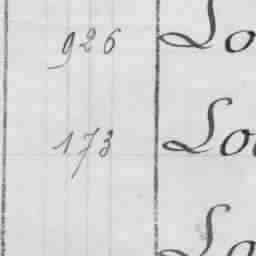 926 Lo
173 Lo
Lo